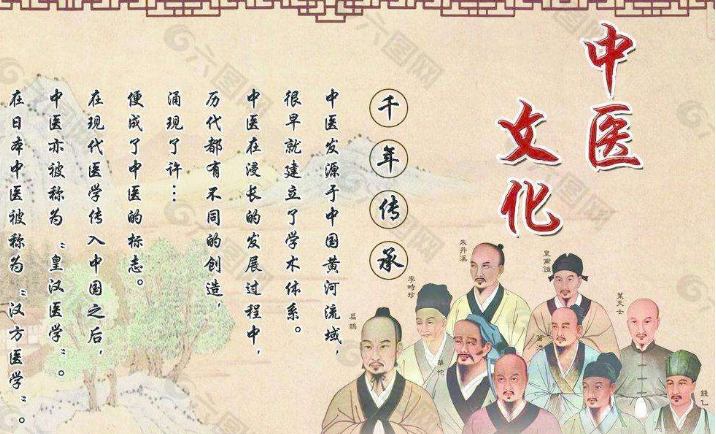 中医
文化
千年传承
中医发源于中国黄河流域，
很早就建立了学术体系。
中医在浸长的发展过程中，
历代都有不同的创造，
涌现了许…
便成了中医的标志。
在现代医学传入中国之后，
中医亦被称为“皇汉医学”。
在日本中医被称为“汉方医学”。
朱丹溪
皇甫谧
李时珍
葉天士
扁鹊
華佗
錢乙
六图网